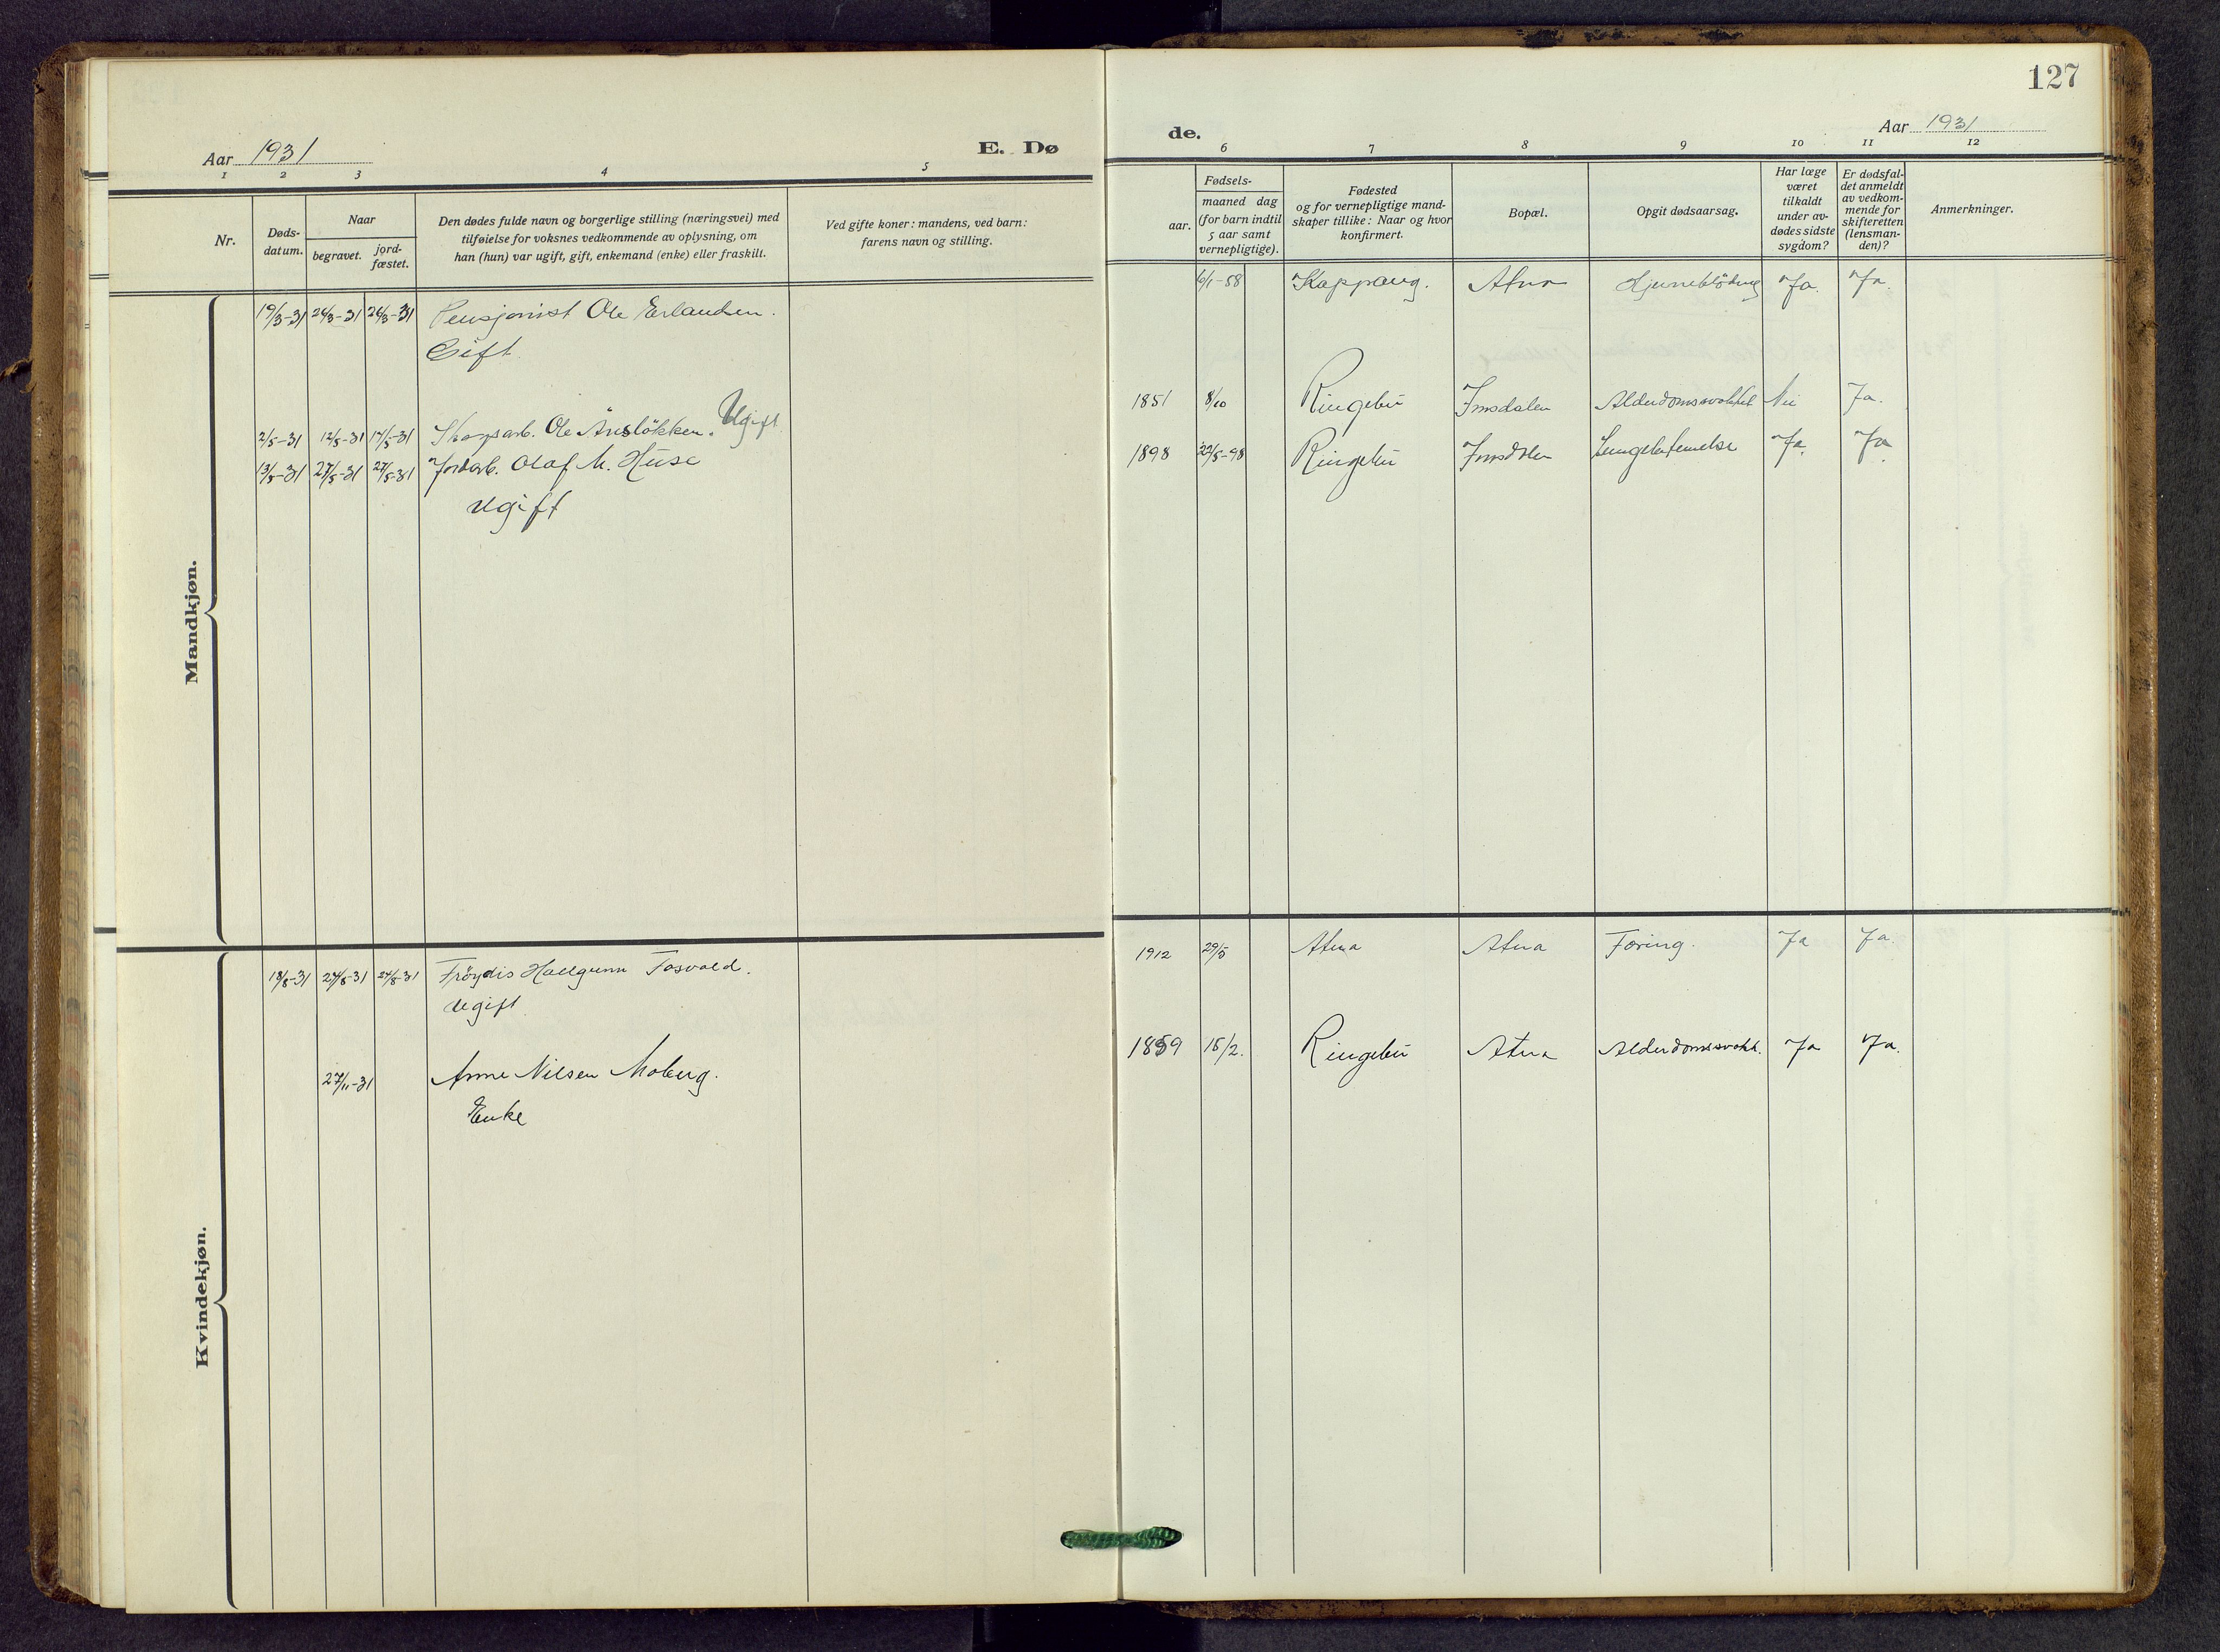 127
Aar 1931
E. Dø
de.
Aar 1931
1 2 3 4 5
6 7 8 9 10 11 12
Nr.
Døds-
datum.
Naar
begravet.
jord-
fæstet.
Den dødes fulde navn og borgerlige stilling (næringsvei) med
tilføielse for voksnes vedkommende av oplysning, om
han (hun) var ugift, gift, enkemand (enke) eller fraskilt.
Ved gifte koner: mandens, ved barn:
farens navn og stilling.
Fødsels-
aar.
maaned dag
(for barn indtil
5 aar samt
vernepligtige).
Fødested
og for vernepligtige mand-
skaper tillike: Naar og hvor
konfirmert.
Bopæl.
Opgit dødsaarsag.
Har læge
været
tilkaldt
under av-
dødes sidste
sygdom?
Er dødsfal-
det anmeldt
av vedkom-
mende for
skifteretten
(lensman-
den)?
Anmerkninger.
Mandkjøn.
19/3-31 26/3-31 26/3-31 Pensjonist Ole Erlandsen.
Gift.
6/1-58 Koppang. Atna Hjerneblödning Ja. Ja.
2/5-31 12/5-31 17/5-31 Skogsarb. Ole Ånsløkken. Ugift
1851 8/10 Ringebu Imsdalen Alderdomssvakhet Nei Ja.
13/5-31 27/5-31 27/5-31 Jordarb. Olaf M. Huse
ugift
1898 22/5-98 Ringebu Imsdalen Lungebetennelse Ja. Ja.
Kvindekjøn.
18/8-31 27/8-31 27/8-31 Fröydis Hallgunn Fosvold.
ugift.
1912 29/5 Atna Atna Tæring. Ja Ja.
27/11-31 Anne Nilsen Moberg.
Enke
1859 15/2. Ringebu Atna Alderdomssvakh. Ja Ja.